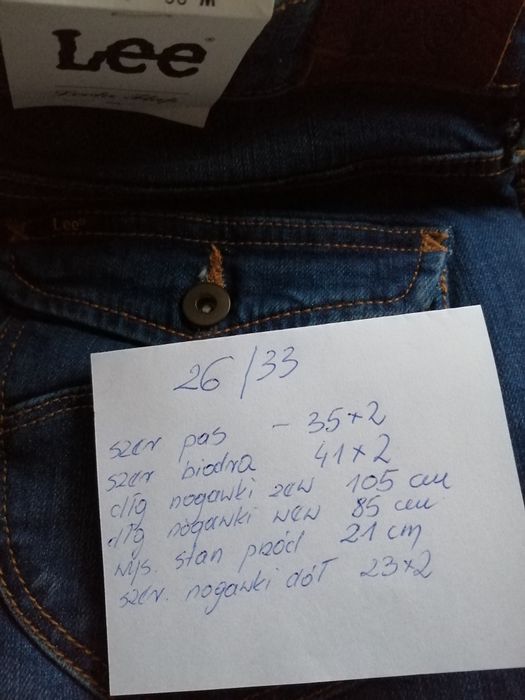 Lee
Lee
26/33
szer pas – 35×2
szer biodra 41×2
dłg nogawki zew 105 cm
dłg nogawki wew 85 cm
wys. stan przód 21 cm
szer. nogawki dół 23×2